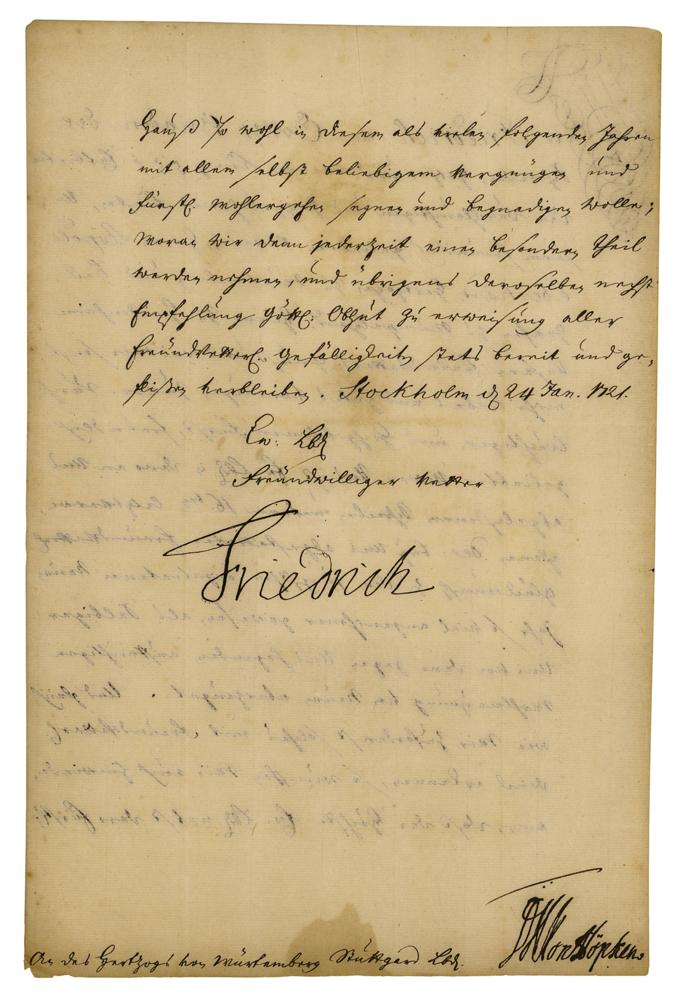 Hauß so wohl in diesem als vielen folgenden Jahren
mit allem selbst beliebigem Vergnügen und
Fürstl. wohlergehen segnen und begnadigen wolle;
Woran wir denn jederzeit einen besondern Theil
werden nehmen, und übrigens Deroselben nechst
Empfehlung Göttl: Obhut zu erweisung aller
Freündvetterl. Gefälligkeiten stets bereit und ge-
flißen verbleiben. Stockholm d 24 Jan. 1721.
Ew: Lbd
Freündwilliger Vetter
Friedrich
Von Höpken
An des Hertzogs von Würtemberg Stuttgard Lbd.